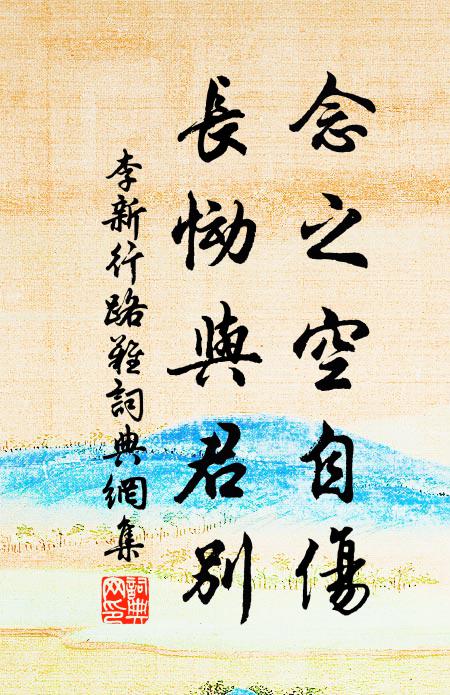 念之空自傷
長慟與君別
李新行路難詞典網集
詞典